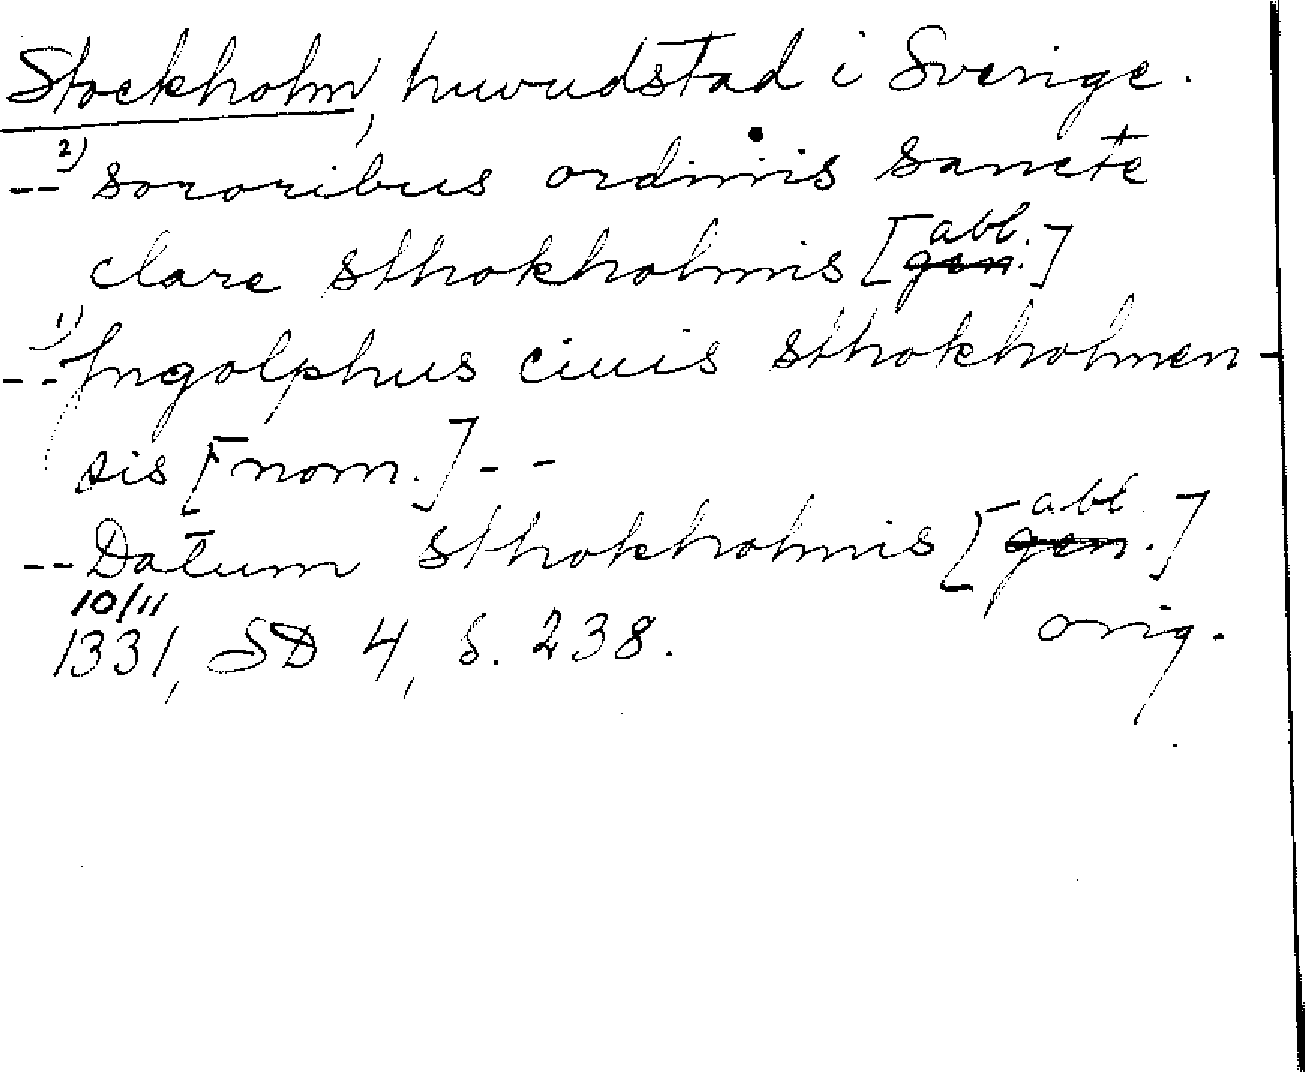 Stockholm, huvudstad i Sverige.
--2) sororibus ordinis sancte
clare sthokholmis [abl. gen.]
--1) Ingolphus ciuis sthokholmen-
sis [nom.] --
--Datum sthokholmis [abl gen.]
10/11
1331, SD 4, s. 238. orig.